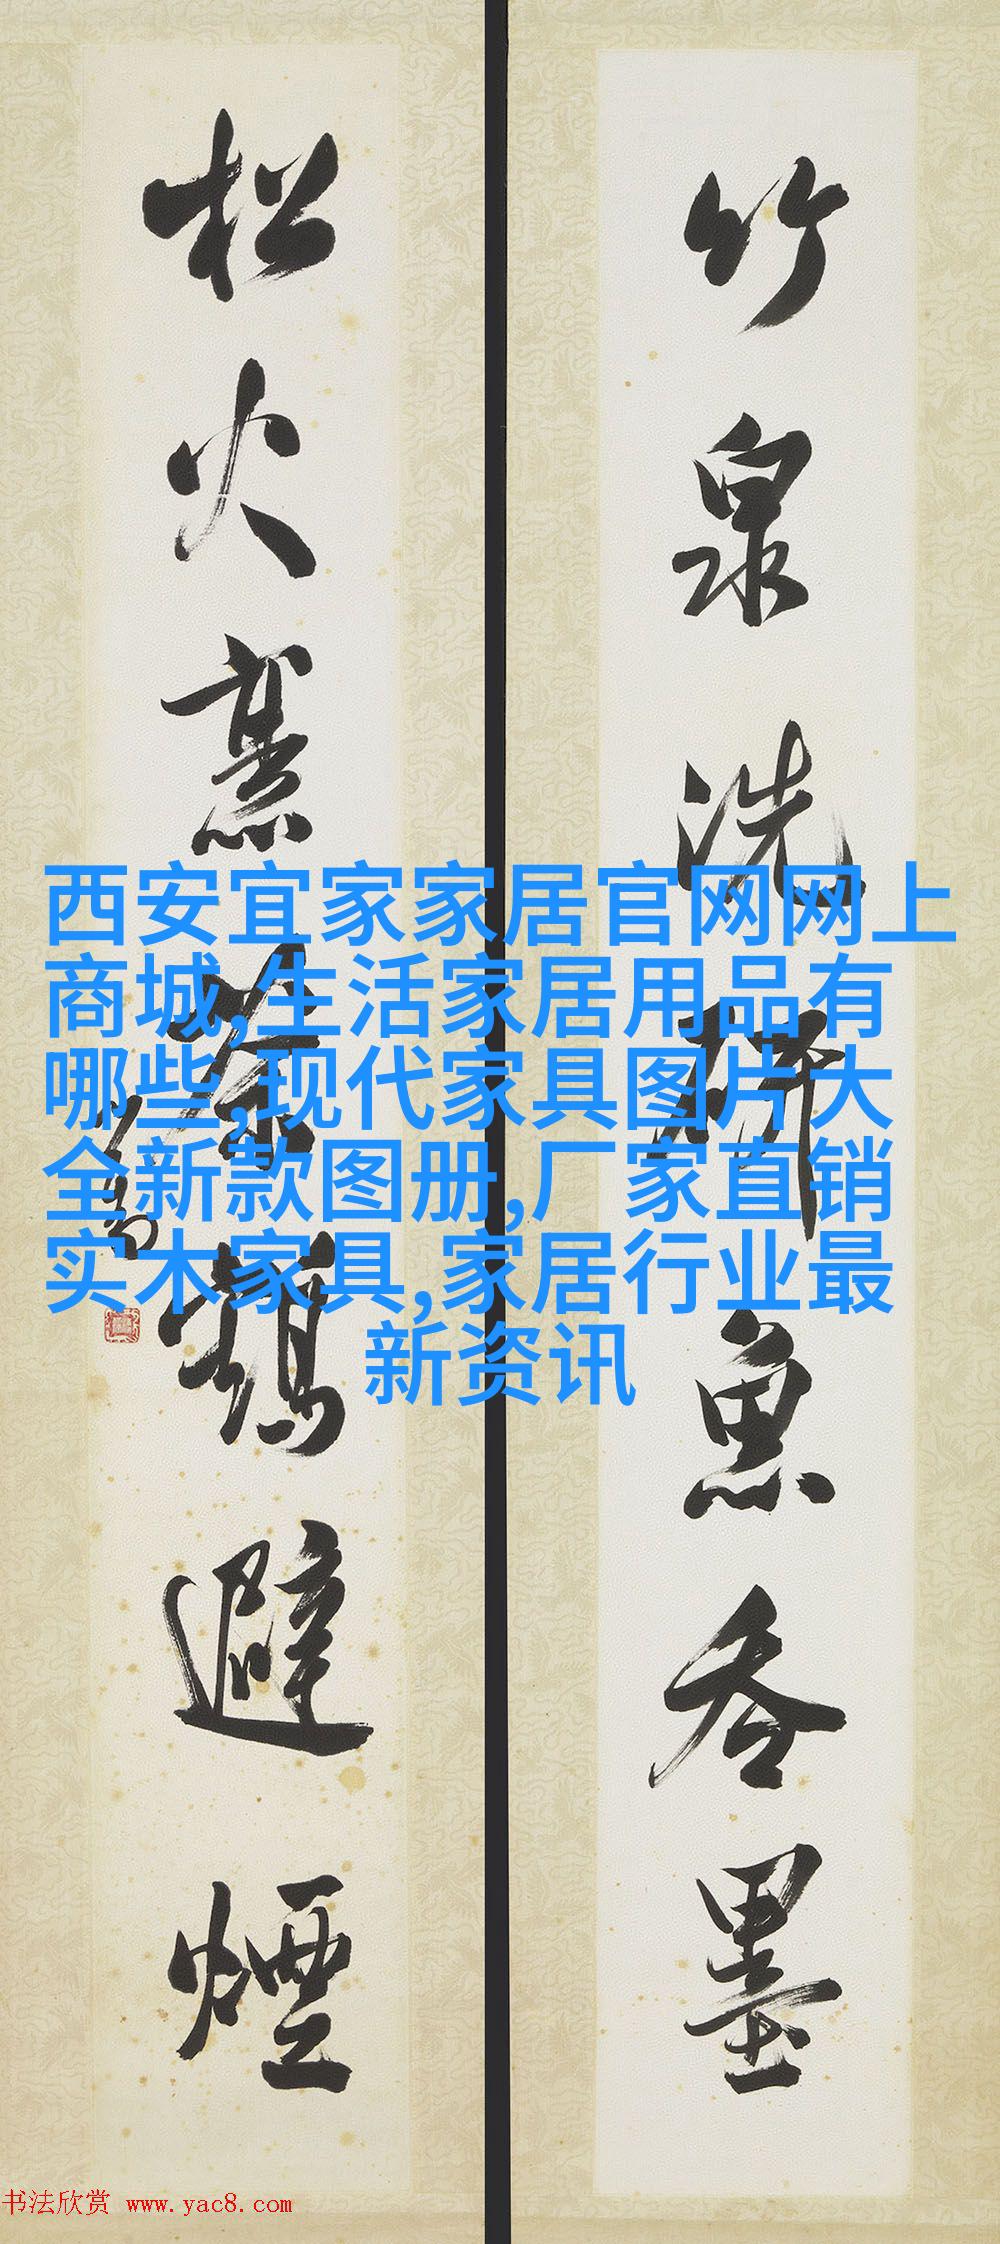 竹泉洗研魚吞墨
松火烹茶鶴避煙
西安宜家家居官网网上
商城,生活家居用品有
哪些,现代家具图片大
全新款图册,厂家直销
实木家具,家居行业最
新资讯
书法欣赏 www.yac8.com